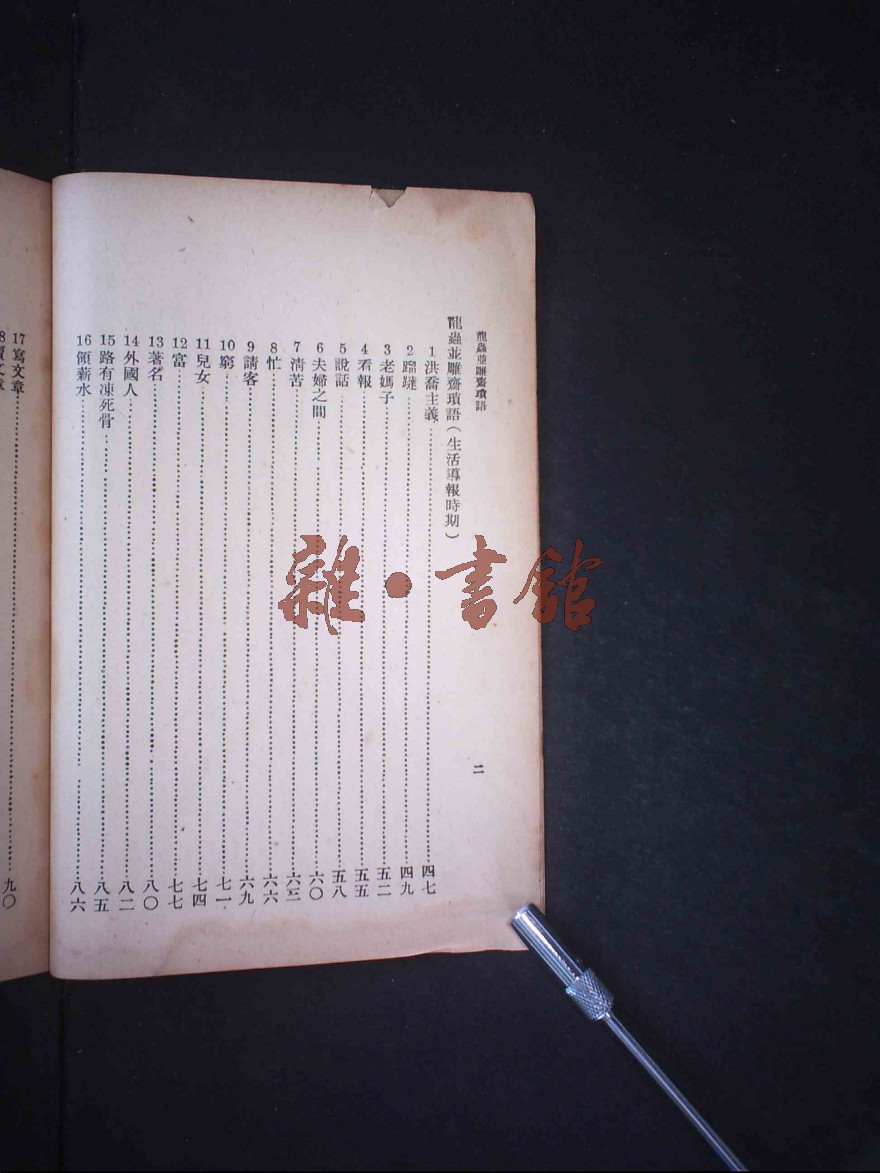 龍蟲並雕齋瑣語
二
龍蟲並雕齋瑣語(生活導報時期)
1 洪喬主義 四七
2 蹓躂 四九
3 老媽子 五二
4 看報 五五
5 說話 五八
6 夫婦之間 六〇
7 清苦 六三
8 忙 六六
9 請客 六九
10 窮 七一
11 兒女 七四
12 富 七七
13 著名 八〇
14 外國人 八二
15 路有凍死骨 八五
16 領薪水 八六
17 寫文章 九〇
賣文章
雜·書館